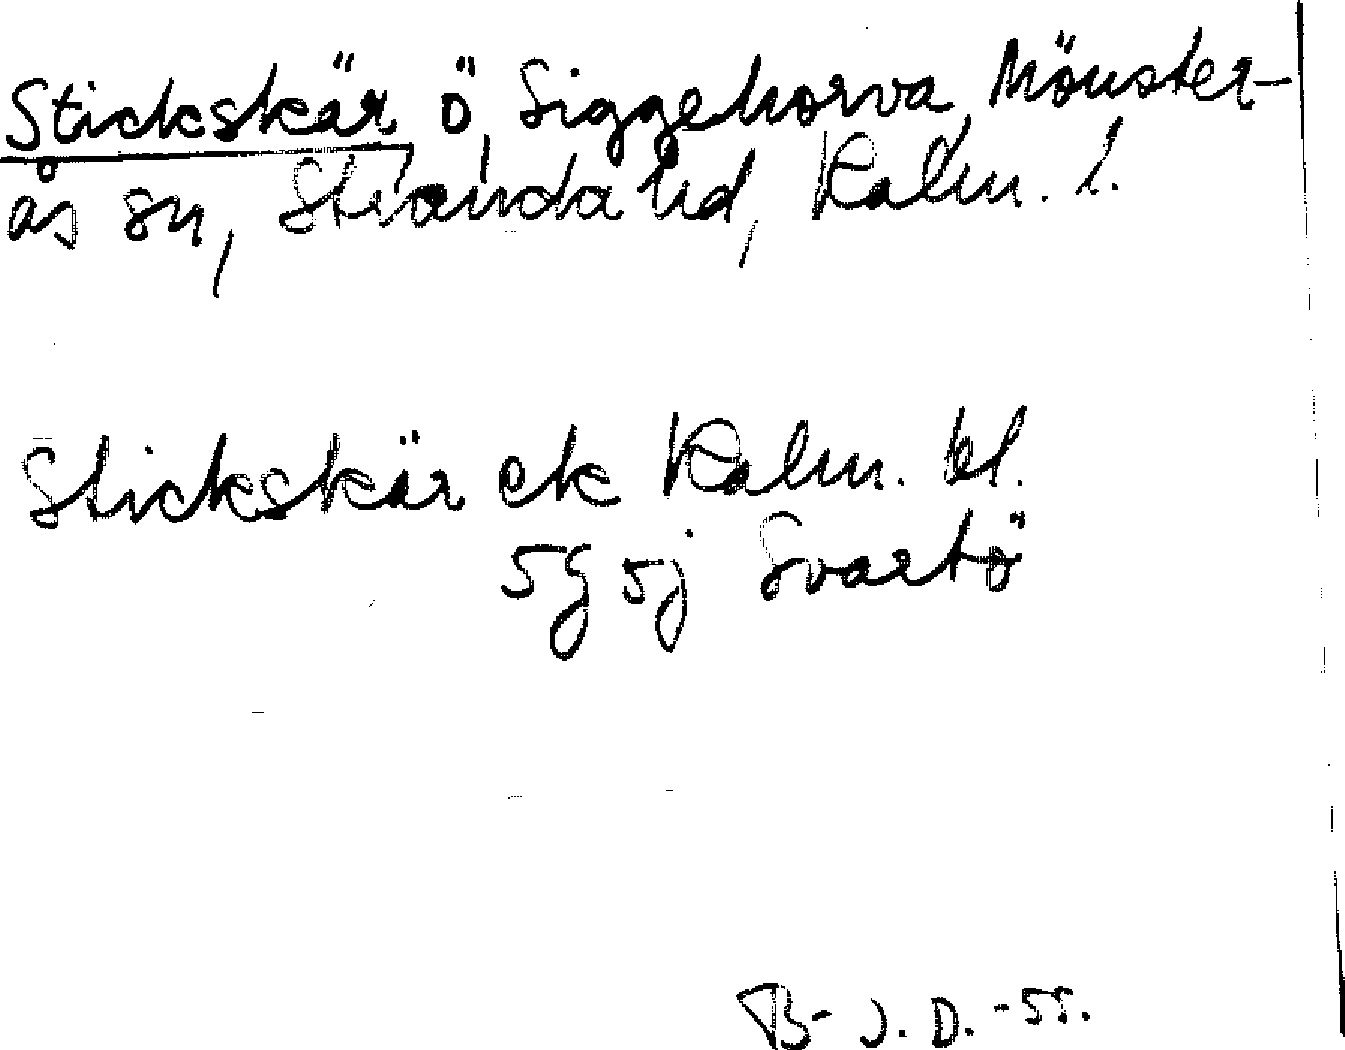 Stickskär, ö, Siggehorva, Mönster-
ås sn, Stranda hd, Kalm. l.
Stickskär ek Kalm. bl.
5g 5j Svartö
B- J. D. -55.